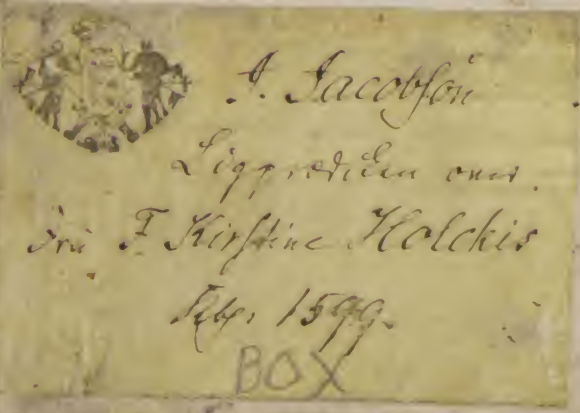 J. Jacobsön
Ligprædiken over
Fru F Kirstine Holckis
Kbh. 1599.
BOX